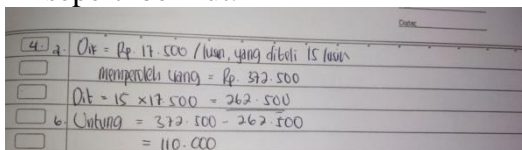 Date:
4. a. Dik = Rp. 17.500 / lusin, yang dibeli 15 lusin
memperoleh uang = Rp. 372.500
Dit = 15 x 17.500 = 262.500
b. Untung = 372.500 - 262.500
= 110.000